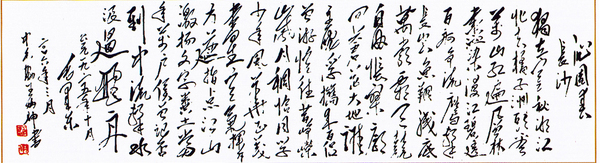 沁园春
长沙
独立寒秋湘江
北去橘子洲头看
万山红遍层林
尽染漫江碧透
百舸争流鹰击
长空鱼翔浅底
万类霜天竞
自由怅寥廓
问苍茫大地谁
主沉浮携来百侣
曾游忆往昔峥嵘
岁月稠恰同学
少年风华正茂
书生意气挥斥
方遒指点江山
激扬文字粪土当
年万户侯曾记否
到中流击水
浪遏飞舟